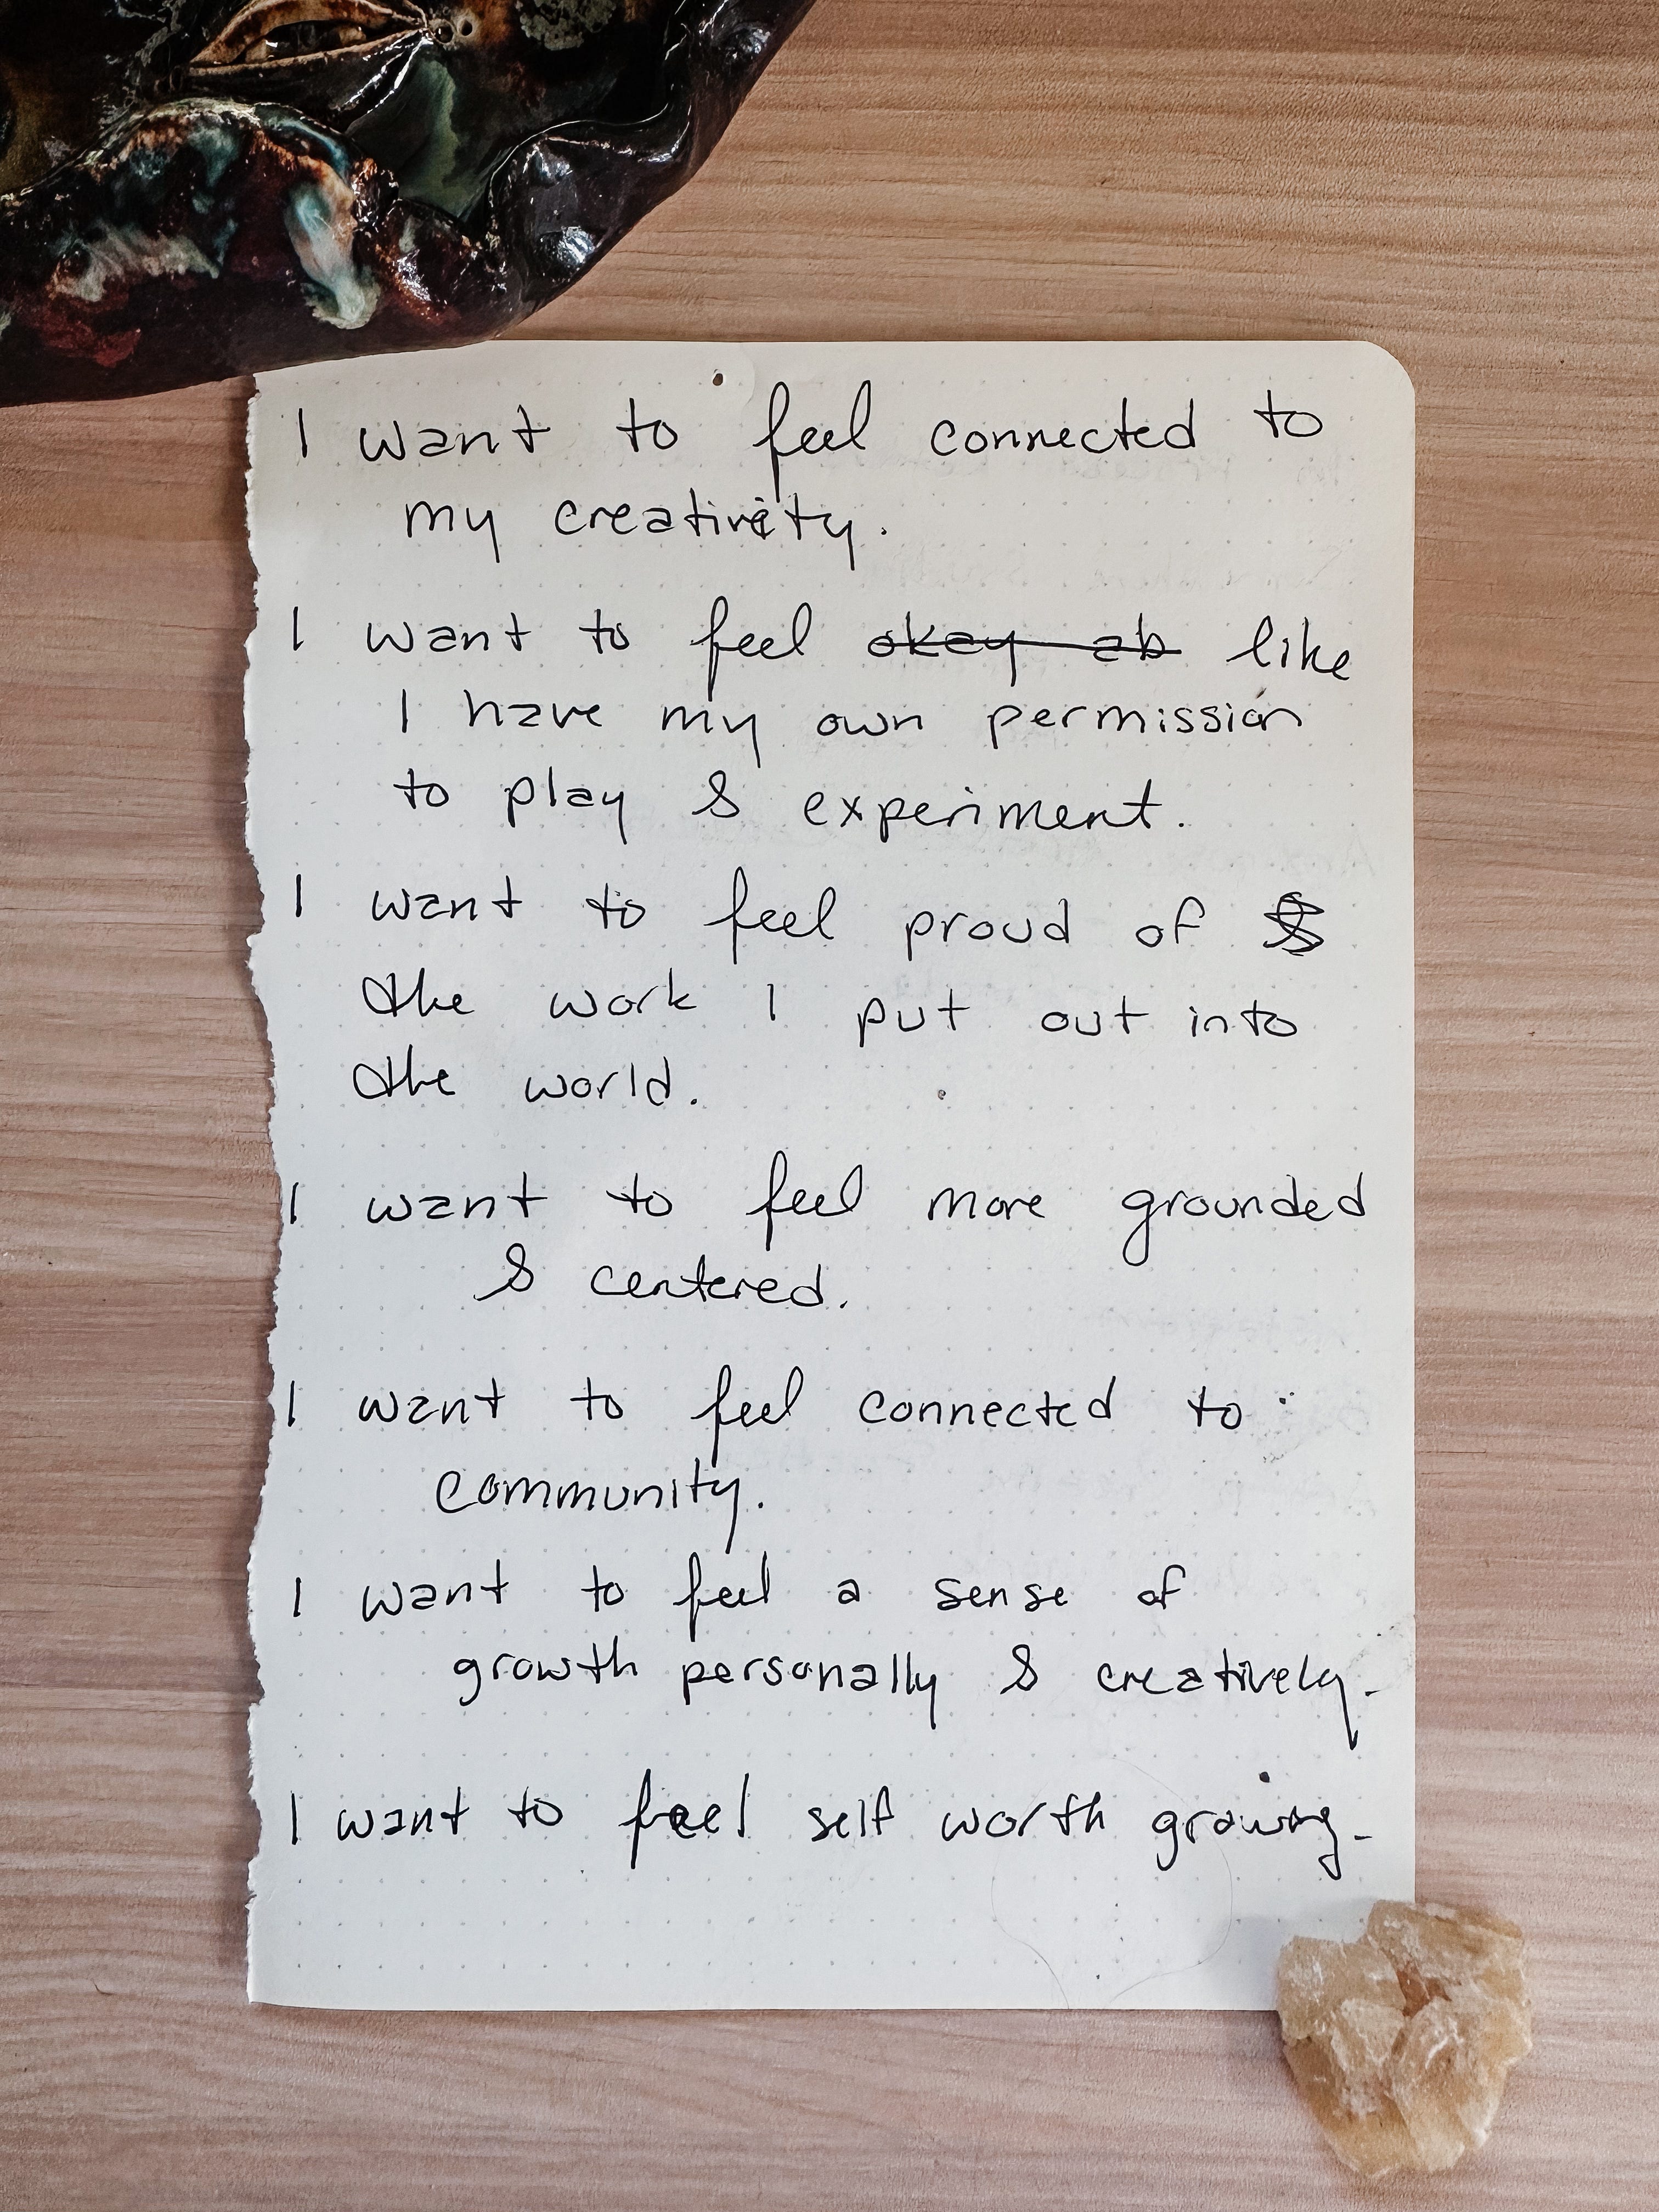 I want to feel connected to
my creativity.
I want to feel okay ab like
I have my own permission
to play & experiment.
I want to feel proud of
the work I put out into
the world.
I want to feel more grounded
& centered.
I want to feel connected to
community.
I want to feel a sense of
growth personally & creatively.
I want to feel self worth growing.